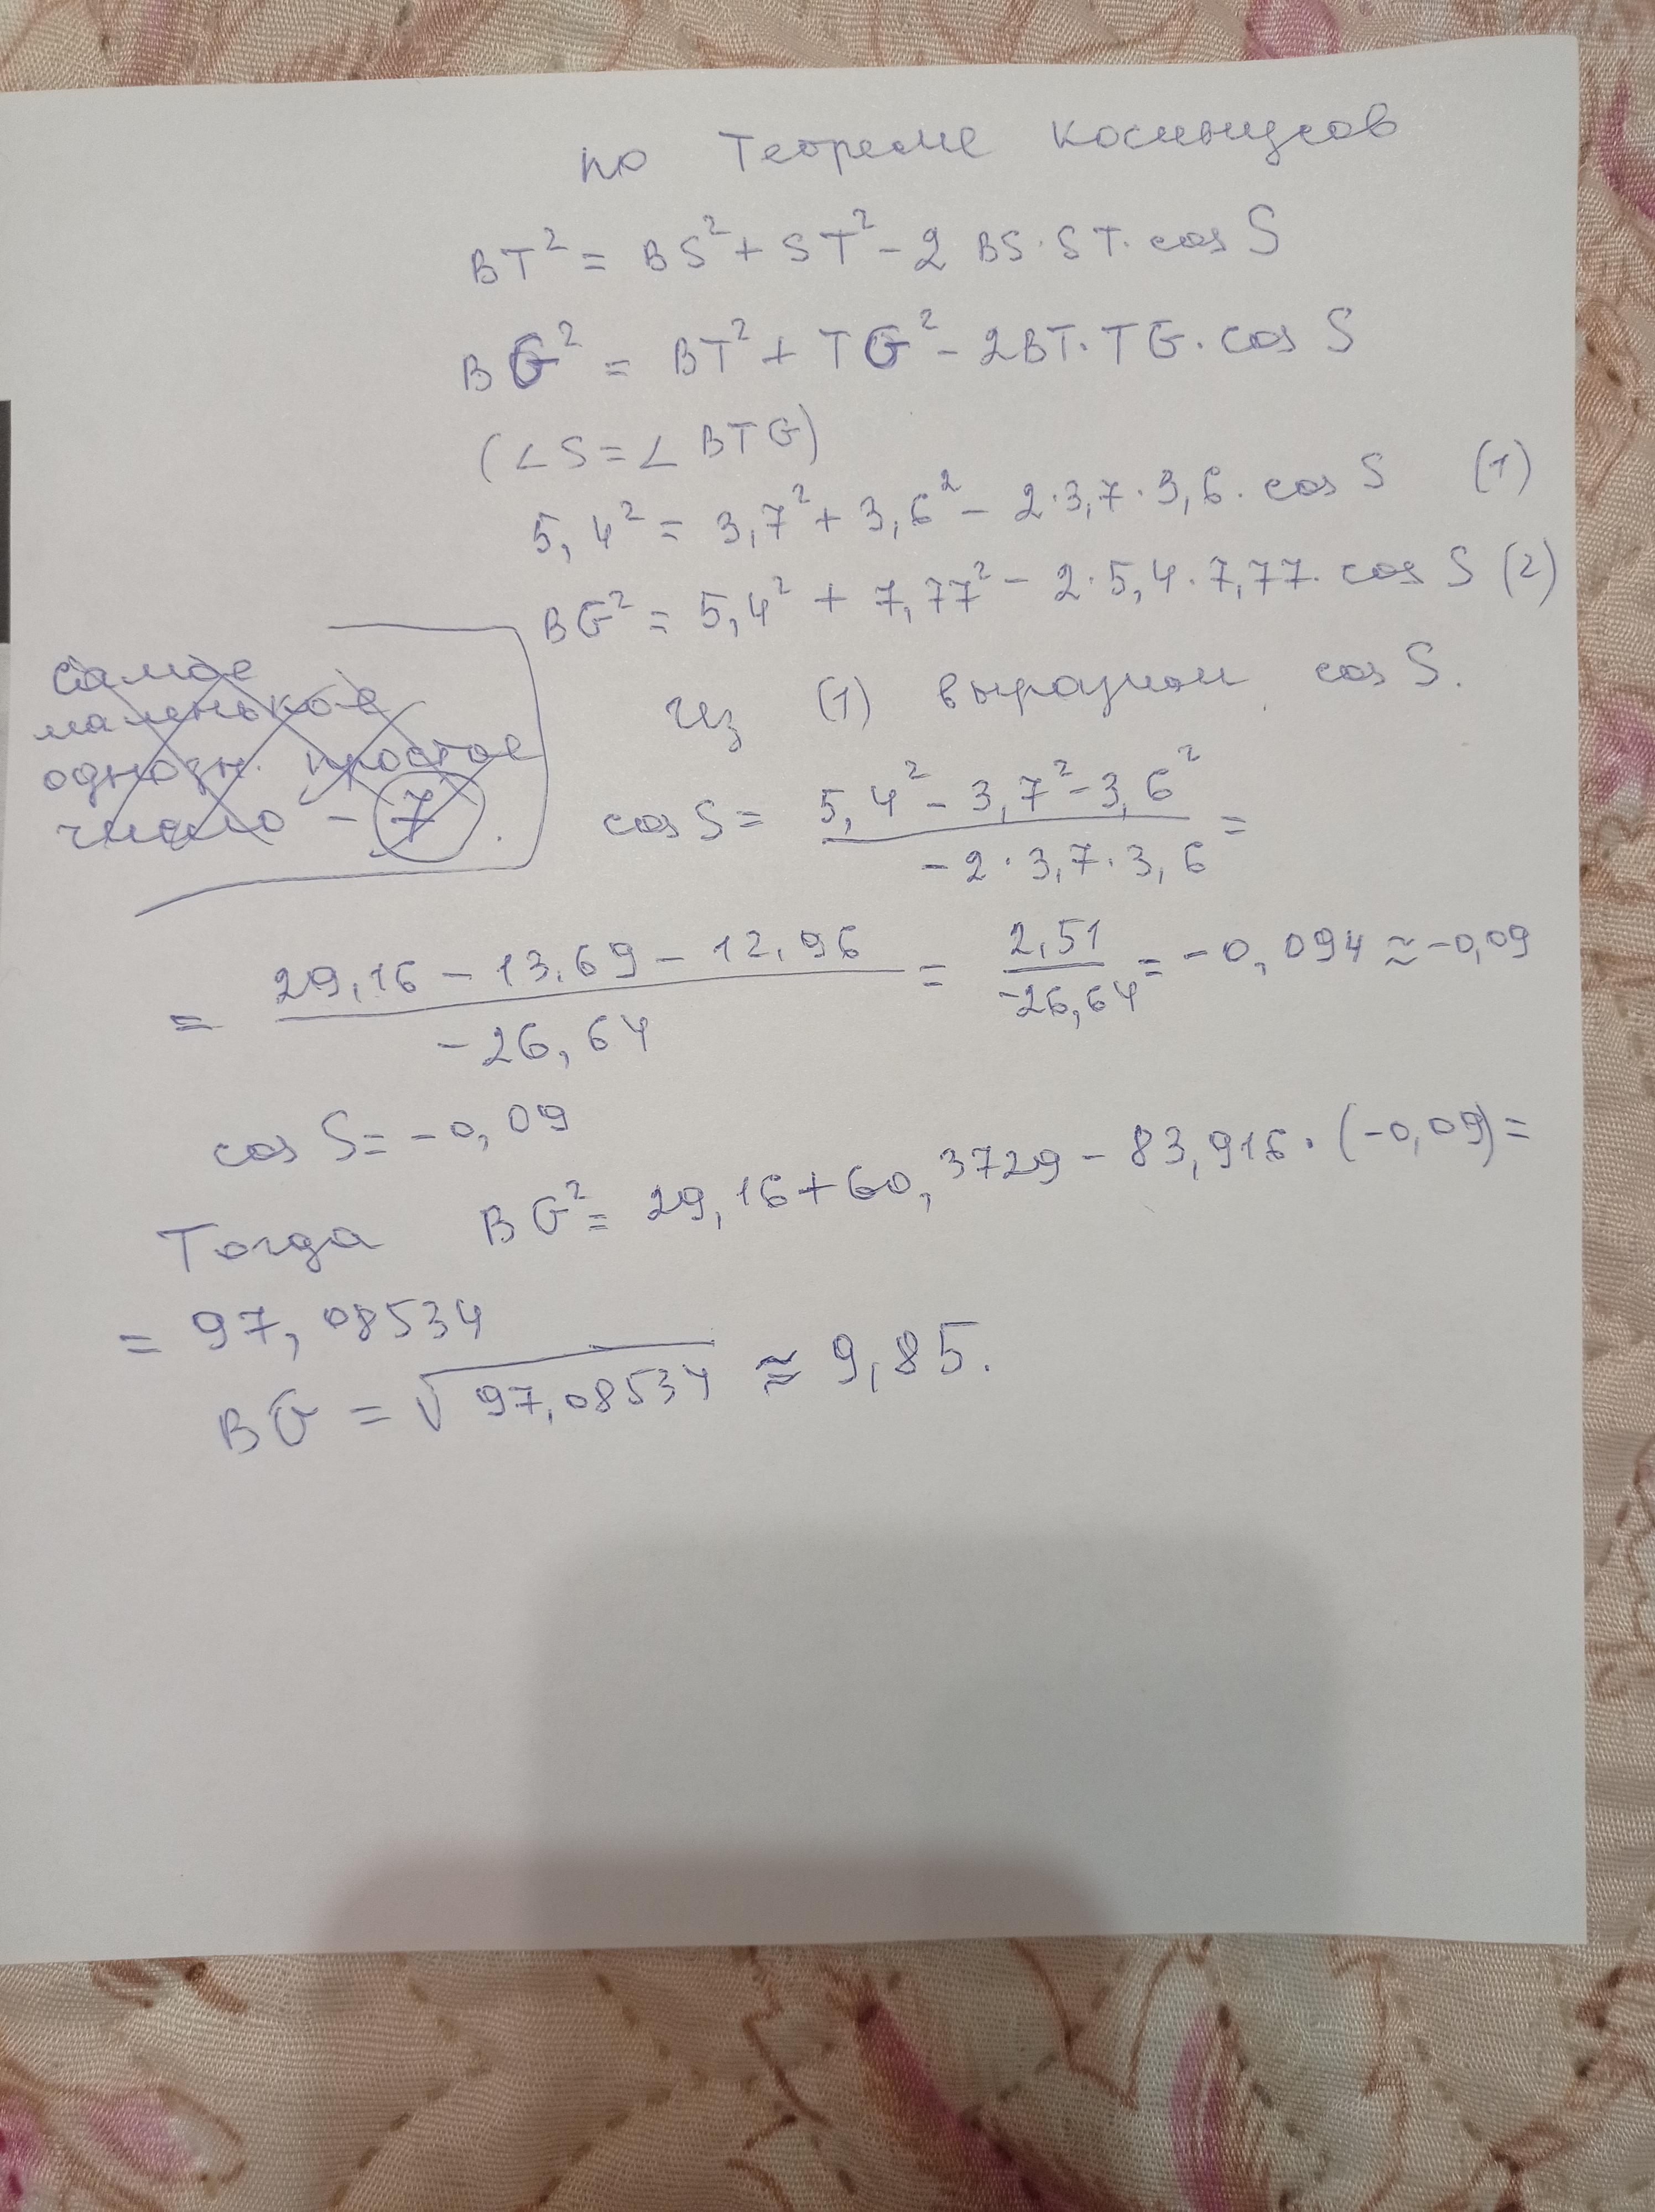 по теореме косинусов
BT² = BS² + ST² - 2 BS · ST · cos S
BG² = BT² + TG² - 2BT · TG · cos S
(∠S = ∠BTG)
5,4² = 3,7² + 3,6² - 2·3,7·3,6· cos S (1)
BG² = 5,4² + 7,77² - 2·5,4·7,77· cos S (2)
самое
маленькое
однозн. простое
число - 7.
Из (1) выразим cos S.
cos S = (5,4² - 3,7² - 3,6²) / (-2·3,7·3,6) =
= (29,16 - 13,69 - 12,96) / (-26,64) = 2,51 / (-26,64) = -0,094 ≈ -0,09
cos S = -0,09
Тогда BG² = 29,16 + 60,3729 - 83,916·(-0,09) =
= 97,08534
BG = √97,08534 ≈ 9,85.